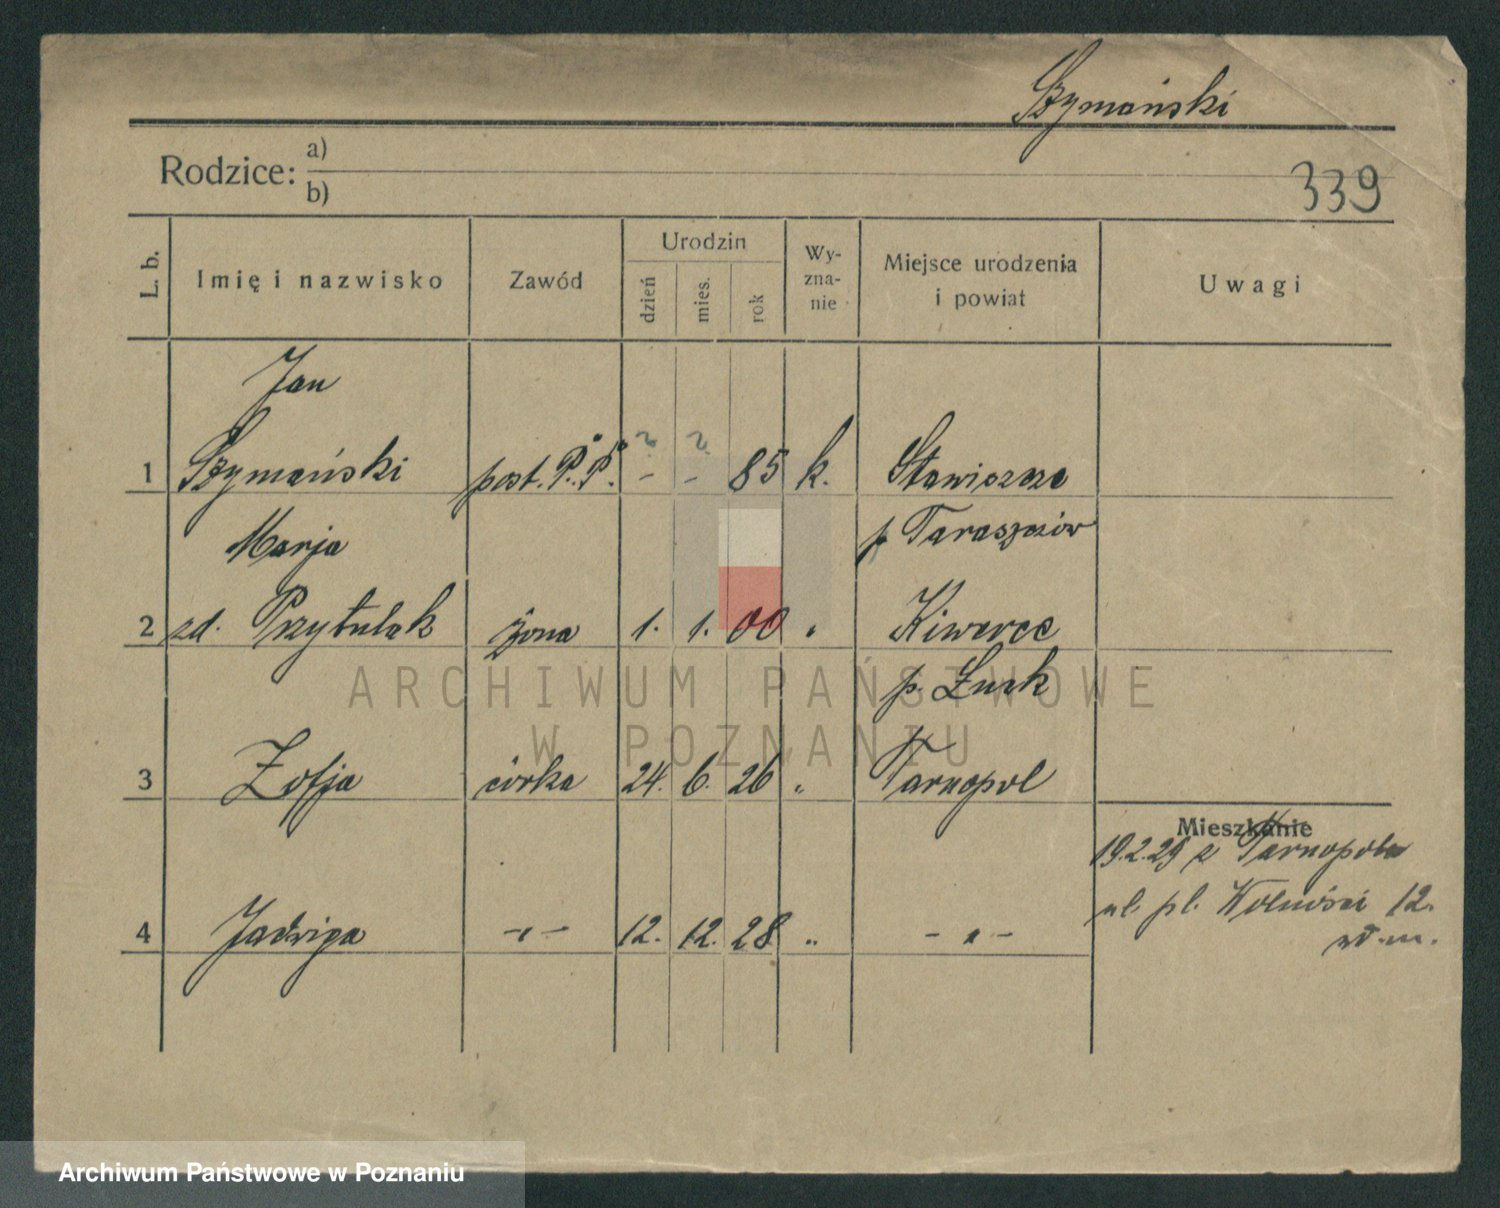 Szymański
Rodzice: a)
b)
339
L. b.
Imię i nazwisko
Zawód
Urodzin
dzień
mies.
rok
Wy-
zna-
nie
Miejsce urodzenia
i powiat
Uwagi
Jan
1 Szymański post. P.P. ? - ? - 85 k. Stawiszcze
p. Taraszczów
Marja
2 zd. Przytulak żona 1. 1. 00 " Kiwerce
p. Łuck
3 Zofja córka 24. 6. 26 " Tarnopol
Mieszkanie
19.2.29 z Tarnopola
ul. pl. Wolności 12.
4 Jadwiga -"- 12. 12. 28 " -"-
ARCHIWUM PAŃSTWOWE
W POZNANIU
Archiwum Państwowe w Poznaniu